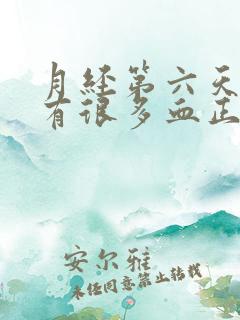 月经第六天
有很多血正
安尔雅
未经同意禁止转载